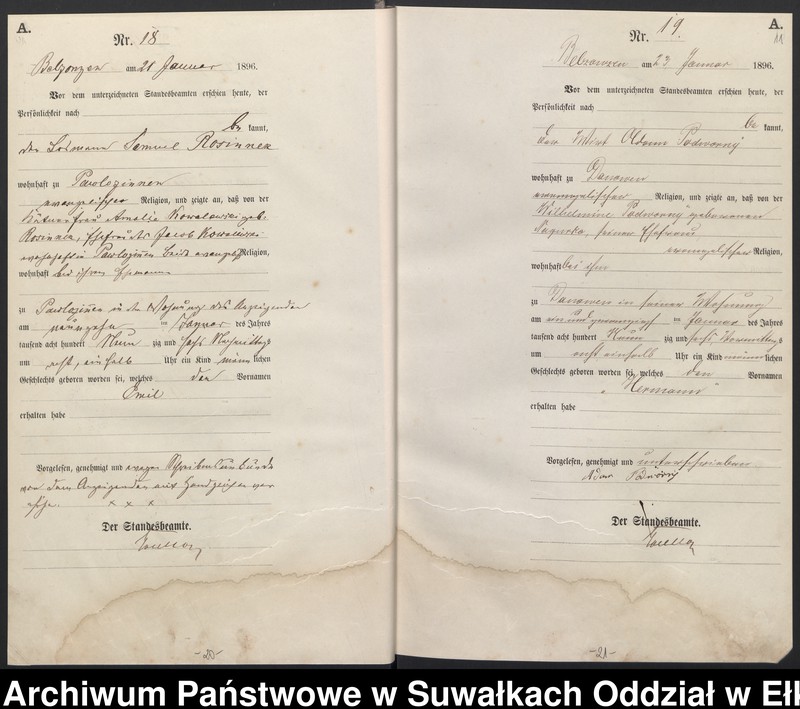 A.
Nr. 18
am 21 Januar 1896.
Vor dem unterzeichneten Standesbeamten erschien heute, der
Persönlichkeit nach
be kannt,
der Losmann Samuel Rosinnek
wohnhaft zu Pawlozinnen
evangelischer Religion, und zeigte an, daß von der
Amalie Kowalewski geb.
Rosinnek, Ehefrau des Jacob Kowalewski
wohnhaft in Pawlozinnen beide evangel. Religion,
wohnhaft bei ihrem Ehemanne
zu Pawlozinnen in der Wohnung des Anzeigenden
am neunzehn ten Januar des Jahres
tausend acht hundert Neun zig und sechs Nachmittags
um acht, einhalb Uhr ein Kind männ lichen
Geschlechts geboren worden sei, welches den Vornamen
Emil
erhalten habe
Vorgelesen, genehmigt und wegen Schreibensunkunde
von dem Anzeigenden mit Handzeichen ver
sehen. x x x
Der Standesbeamte.
-20-
A.
11
Nr. 19.
am 23 Januar 1896.
Vor dem unterzeichneten Standesbeamten erschien heute, der
Persönlichkeit nach
be kannt,
der Wirt Podworny
wohnhaft zu Danowen
evangelischer Religion, und zeigte an, daß von der
Wilhelmine Podworny geborenen
seiner Ehefrau
evangelischer Religion,
wohnhaft bei ihm
zu Danowen in seiner Wohnung
am ein und zwanzigst ten Januar des Jahres
tausend acht hundert Neun zig und sechs Vormittags
um acht einhalb Uhr ein Kind männ lichen
Geschlechts geboren worden sei, welches den Vornamen
„Hermann"
erhalten habe
Vorgelesen, genehmigt und unterschrieben
Der Standesbeamte.
-21-
Archiwum Państwowe w Suwałkach Oddział w Ełk